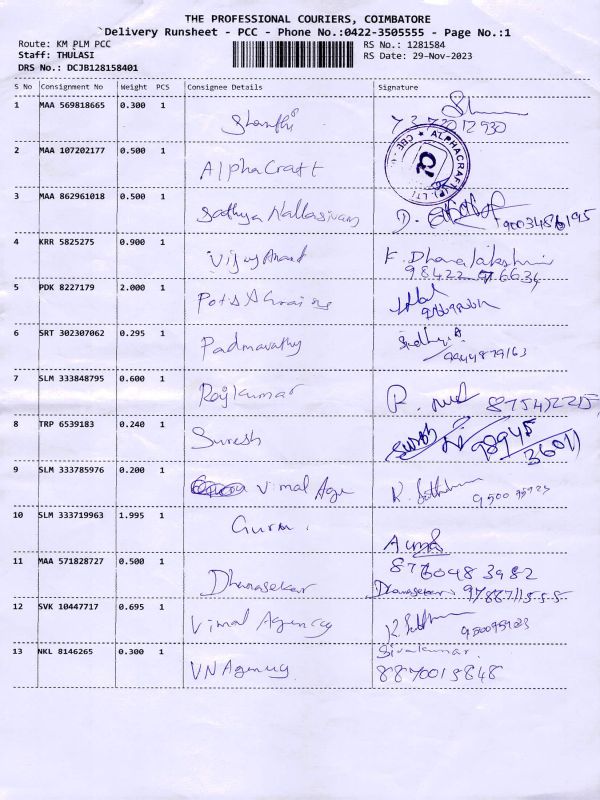 THE PROFESSIONAL COURIERS, COIMBATORE
`Delivery Runsheet - PCC - Phone No.:0422-3505555 - Page No.:1
Route: KM PLM PCC RS No.: 1281584
Staff: THULASI RS Date: 29-Nov-2023
DRS No.: DCJB128158401
S No Consignment No Weight PCS Consignee Details Signature
1 MAA 569818665 0.300 1 Shanthi
2 MAA 107202177 0.500 1 AlphaCraft
ALPHACRAFT (P) LTD
3 MAA 862961018 0.500 1 Sathya Nallasivam
4 KRR 5825275 0.900 1 Vijay Anand K. Dhanalakshmi
5 PDK 8227179 2.000 1
6 SRT 302307062 0.295 1 Padmavathy
9944879163
7 SLM 333848795 0.600 1 Rajkumar
8 TRP 6539183 0.240 1 Suresh Suresh
98945
36011
9 SLM 333785976 0.200 1 Vimal Age
10 SLM 333719963 1.995 1
11 MAA 571828727 0.500 1 Dhanasekar
8760483982
Dhanasekar
12 SVK 10447717 0.695 1 Vimal Agency
13 NKL 8146265 0.300 1 VN Agency Sivakumar
8870015848